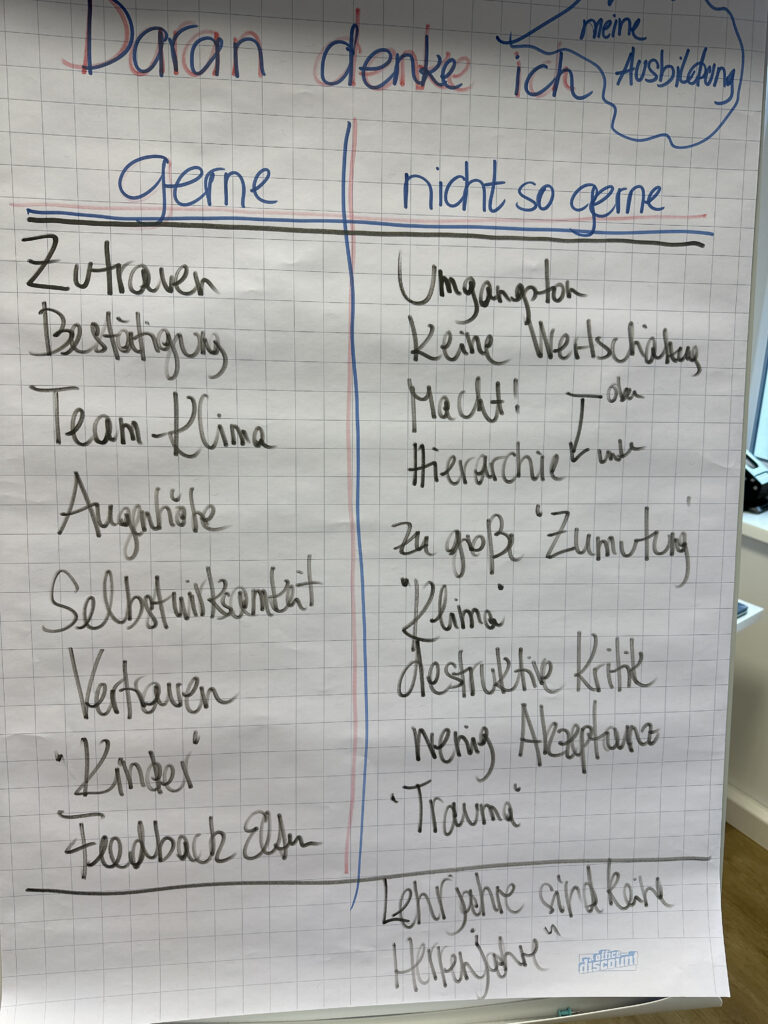 Daran denke ich
meine
Ausbildung
gerne
nicht so gerne
Zutrauen
Bestätigung
Team-Klima
Augenhöhe
Selbstwirksamkeit
Vertrauen
"Kinder"
Feedback Eltern
Umgangston
Keine Wertschätzung
Macht!
oben
Hierarchie
unten
zu große "Zumutung"
"Klima"
destruktive Kritik
wenig Akzeptanz
"Trauma"
Lehrjahre sind keine
Herrenjahre"
office
discount